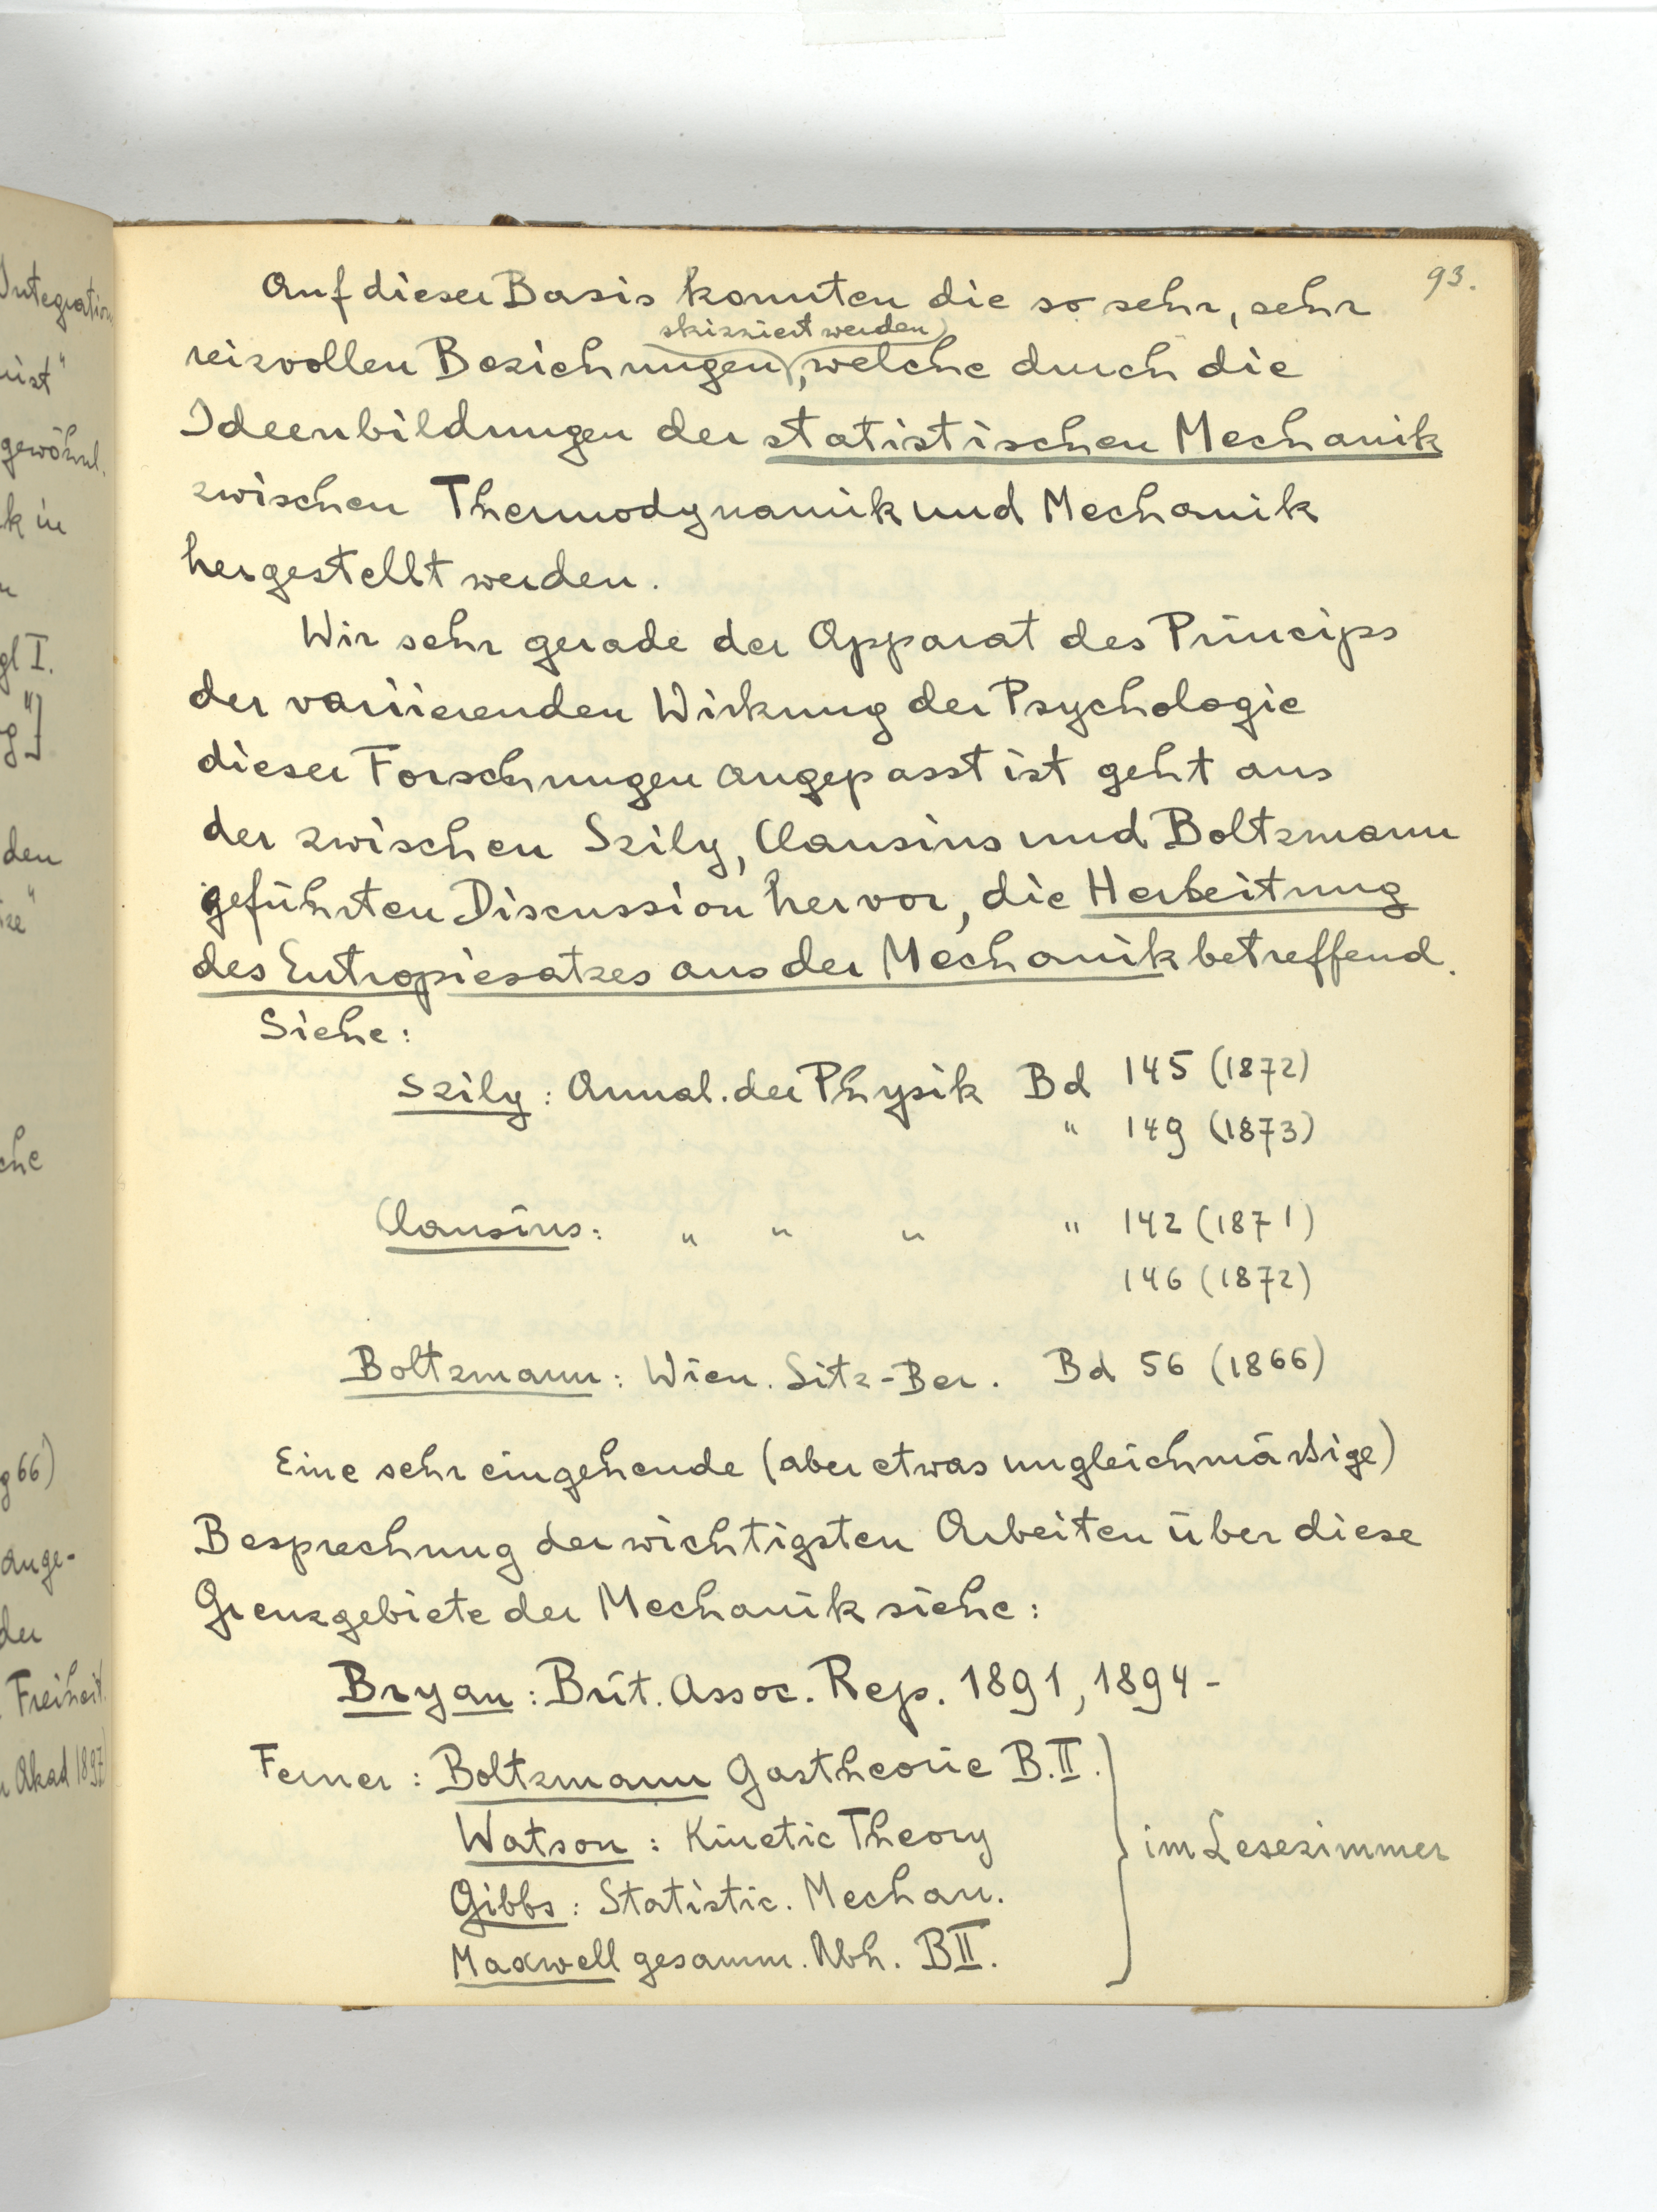 Integration
93.
Auf dieser Basis konnten die so sehr, sehr
skizziert werden
reizvollen Beziehungen, welche durch die
gewöhnl.
Ideenbildungen der statistischen Mechanik
k in
zwischen Thermodynamik und Mechanik
hergestellt werden.
gl I.
Wir sehr gerade der Apparat des Princips
der variierenden Wirkung der Psychologie
dieser Forschungen angepasst ist geht aus
den
der zwischen Szily, Clausius und Boltzmann
geführten Discussion hervor, die Herleitung
des Entropiesatzes aus der Mechanik betreffend.
Siehe:
Szily: Annal. der Physik Bd 145 (1872)
" 149 (1873)
che
Clausius: " " " " 142 (1871)
146 (1872)
Boltzmann: Wien. Sitz-Ber. Bd 56 (1866)
g 66)
Eine sehr eingehende (aber etwas ungleichmäßige)
ange-
Besprechung der wichtigsten Arbeiten über diese
der
Grenzgebiete der Mechanik siehe:
Freiheit.
Bryan: Brit. Assoc. Rep. 1891, 1894-
Akad 1897)
Ferner: Boltzmann Gastheorie B.II.
Watson: Kinetic Theory
im Lesezimmer
Gibbs: Statistic. Mechan.
Maxwell gesamm. Abh. BII.